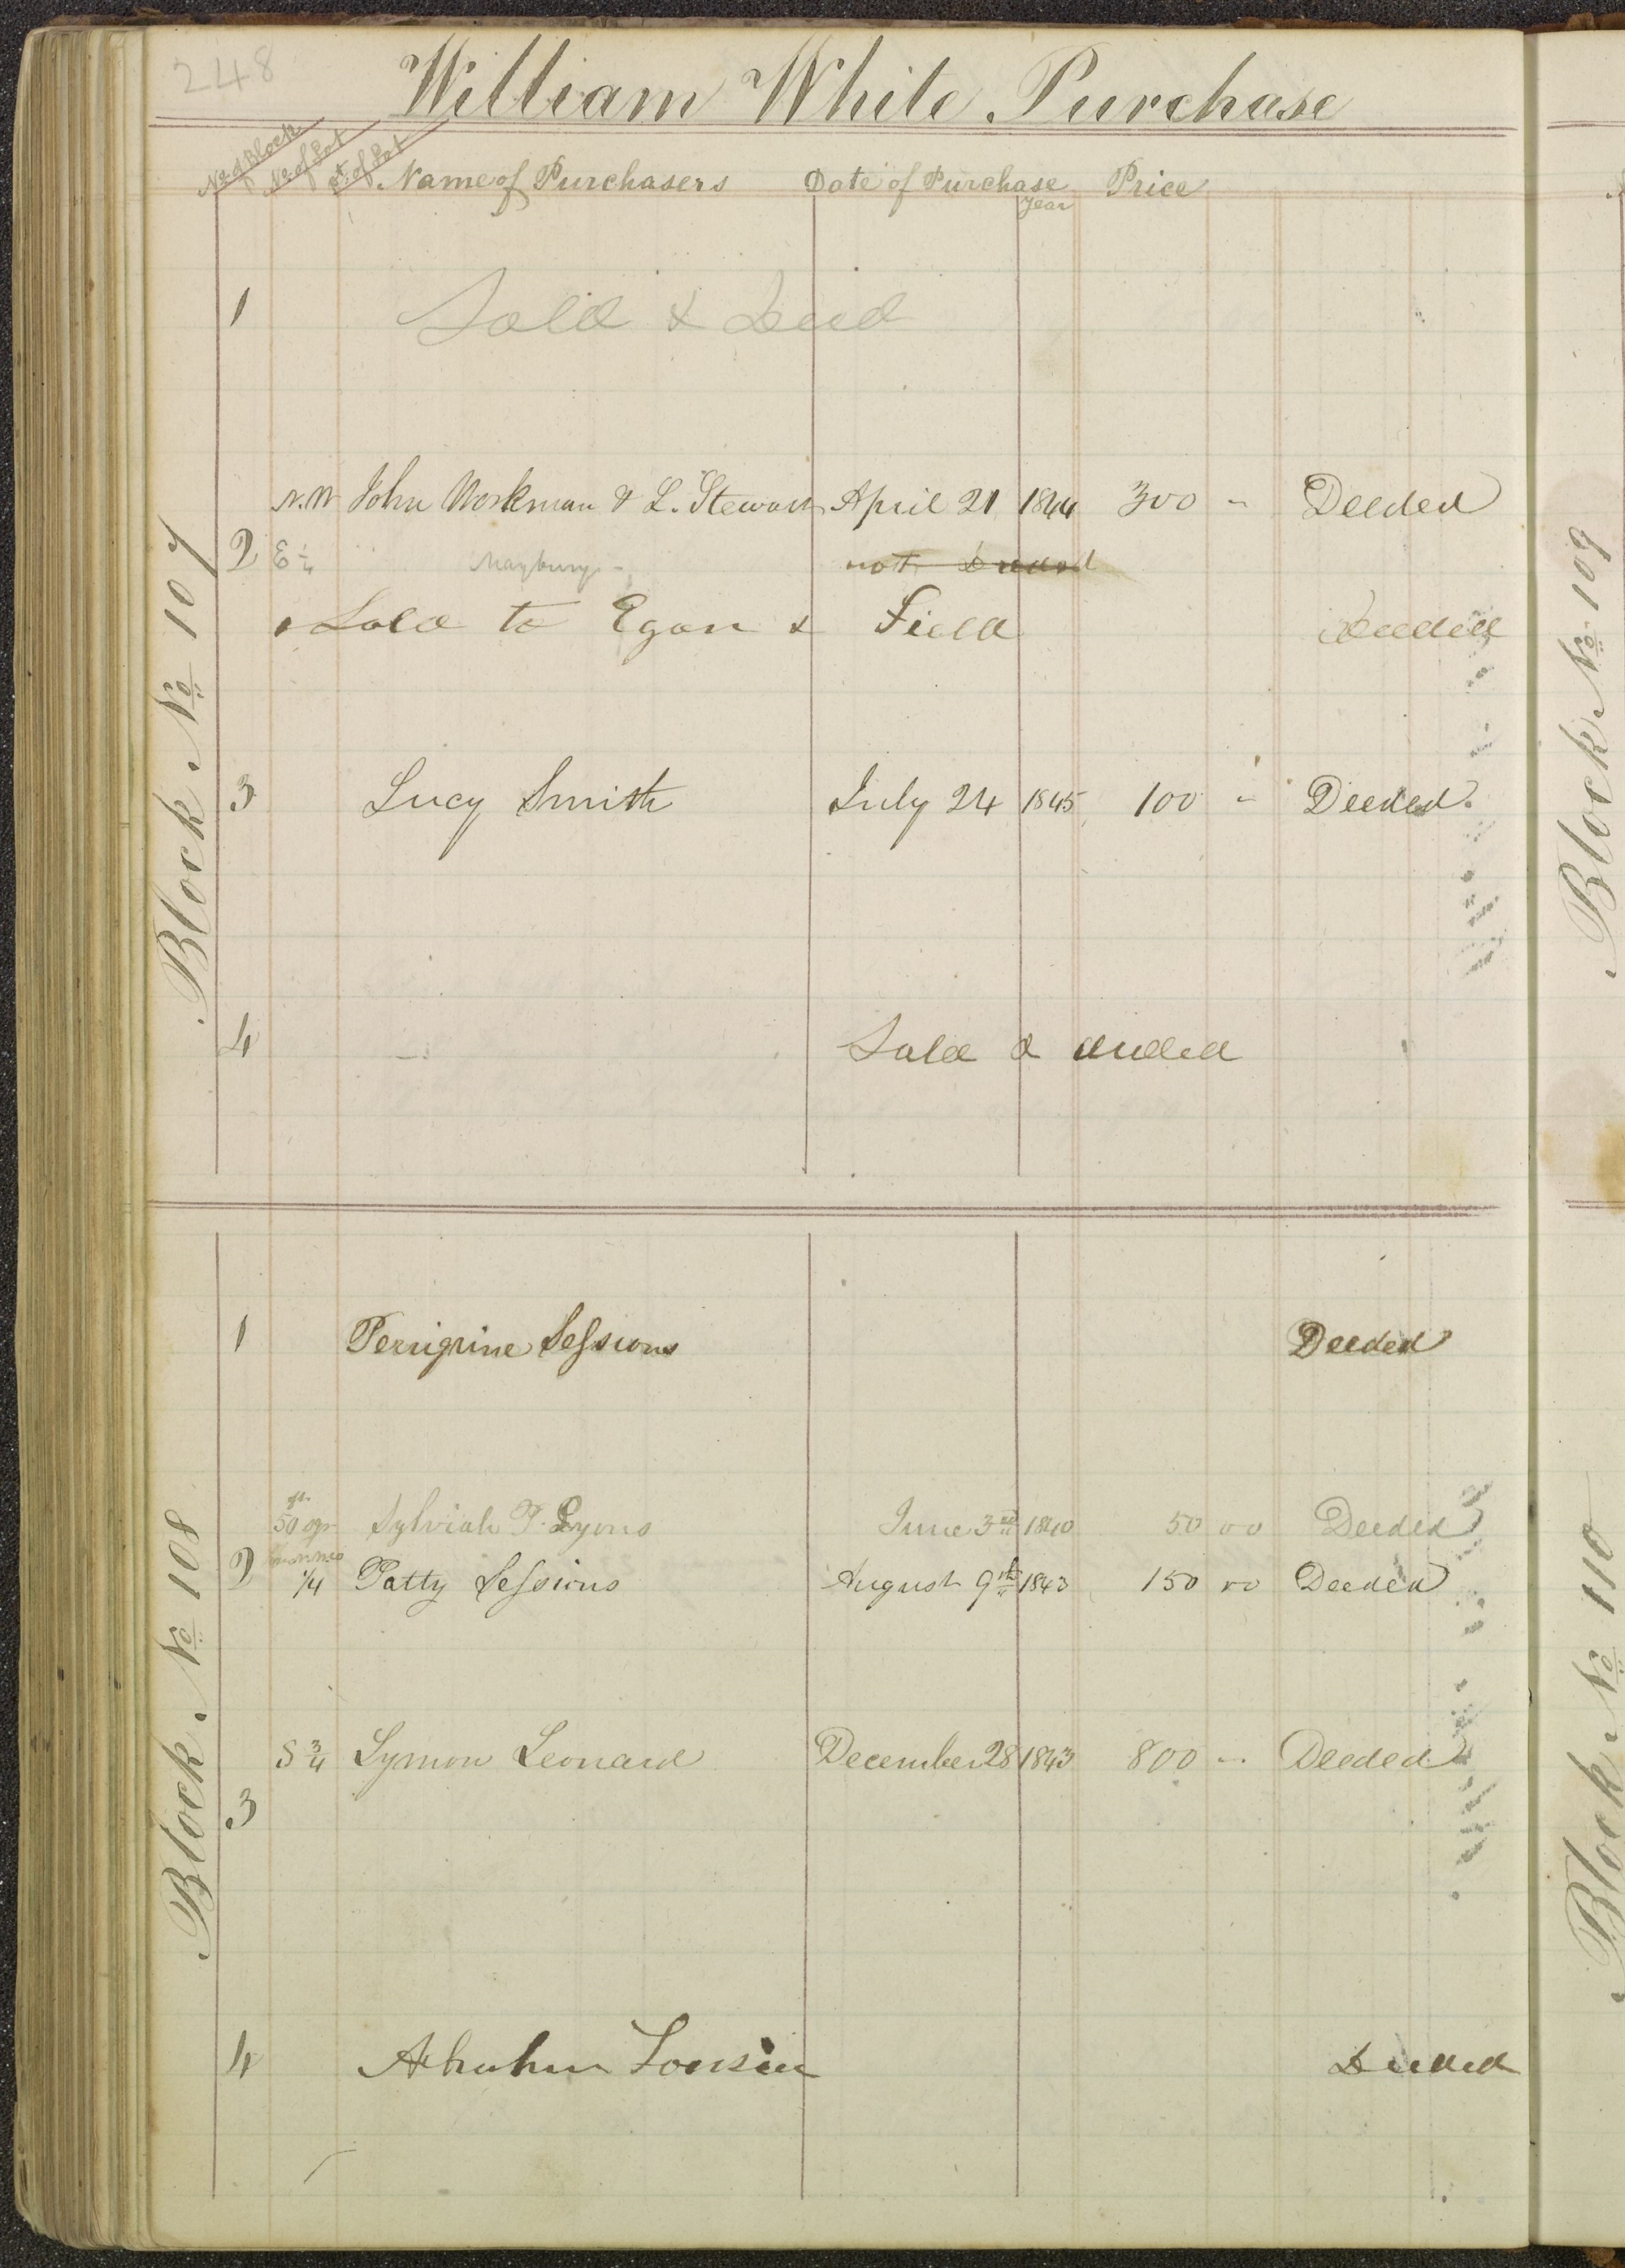 248
William White Purchase
No. of Block No. of Lot Pt. of Lot Name of Purchasers Date of Purchase Year Price
Block No 107
1 Sold & Deed
N.W John Workman & L. Stewart April 21 1844 300 - Deeded
2 E 1/4 Mayburys - not Deeded
Sold to Egan & Field Deeded
3 Lucy Smith July 24 1845 100 - Deeded.
4 Sold & deeded
Block No 108
1 Perrigrine Sessions Deeded
50 Sylviah P. Lyons June 3rd 1840 50 00 Deeded
2 1/4 Patty Sessions August 9th 1843 150 00 Deeded
S 3/4 Lymon Leonard December 28 1843 800 - Deeded
3
4 Deeded
Block No 109
Block No 110